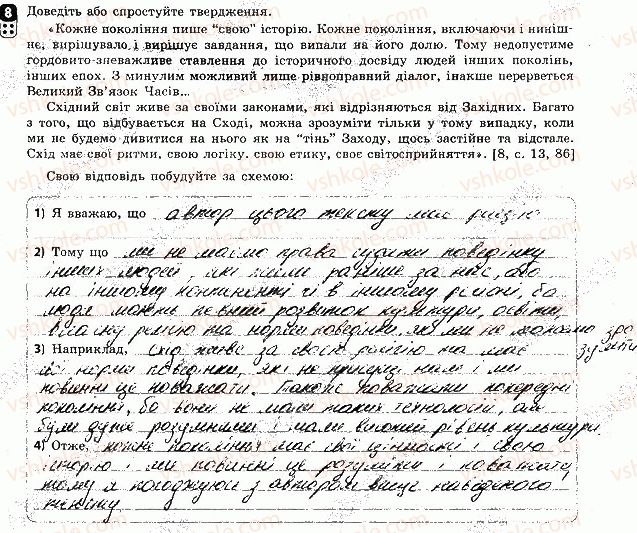 8 Доведіть або спростуйте твердження.
«Кожне покоління пише “свою” історію. Кожне покоління, включаючи і нинiш-
нє, вирішувало і вирішує завдання, що випали на його долю. Тому недопустиме
гордовито-зневажливе ставлення до історичного досвіду людей інших поколінь,
інших епох. З минулим можливий лише рівноправний діалог, інакше перерветься
Великий Зв’язок Часів...
Східний світ живе за своїми законами, які відрізняються від Західних. Багато
з того, що відбувається на Сході, можна зрозуміти тільки у тому випадку, коли
ми не будемо дивитися на нього як на “тінь” Заходу, щось застійне та відстале.
Схід має свої ритми, свою логіку. свою етику, своє світосприйняття». [8, с. 13, 86]
Свою відповідь побудуйте за схемою:
1) Я вважаю, що автор цього тексту має рацію
2) Тому що ми не маємо права судити поведінку
інших людей, які жили раніше за нас, або
на іншому континенті чи в іншому регіоні, бо
люди мають певний розвиток культури, освіти
власну релігію та норми поведінки, які ми не можемо зро
зуміти
3) Наприклад, схід живе за своєю релігією та має
свої норми поведінки, які не ми і ми
повинні це поважати. Також поважати попередні
покоління, бо вони не мали таких технологій, але
були дуже розумними і мали високий рівень культури.
4) Отже, кожне покоління має свої цінності і свою
історію і ми повинні це розуміти і поважати
тому я погоджуюсь з автором вище наведеного
тексту